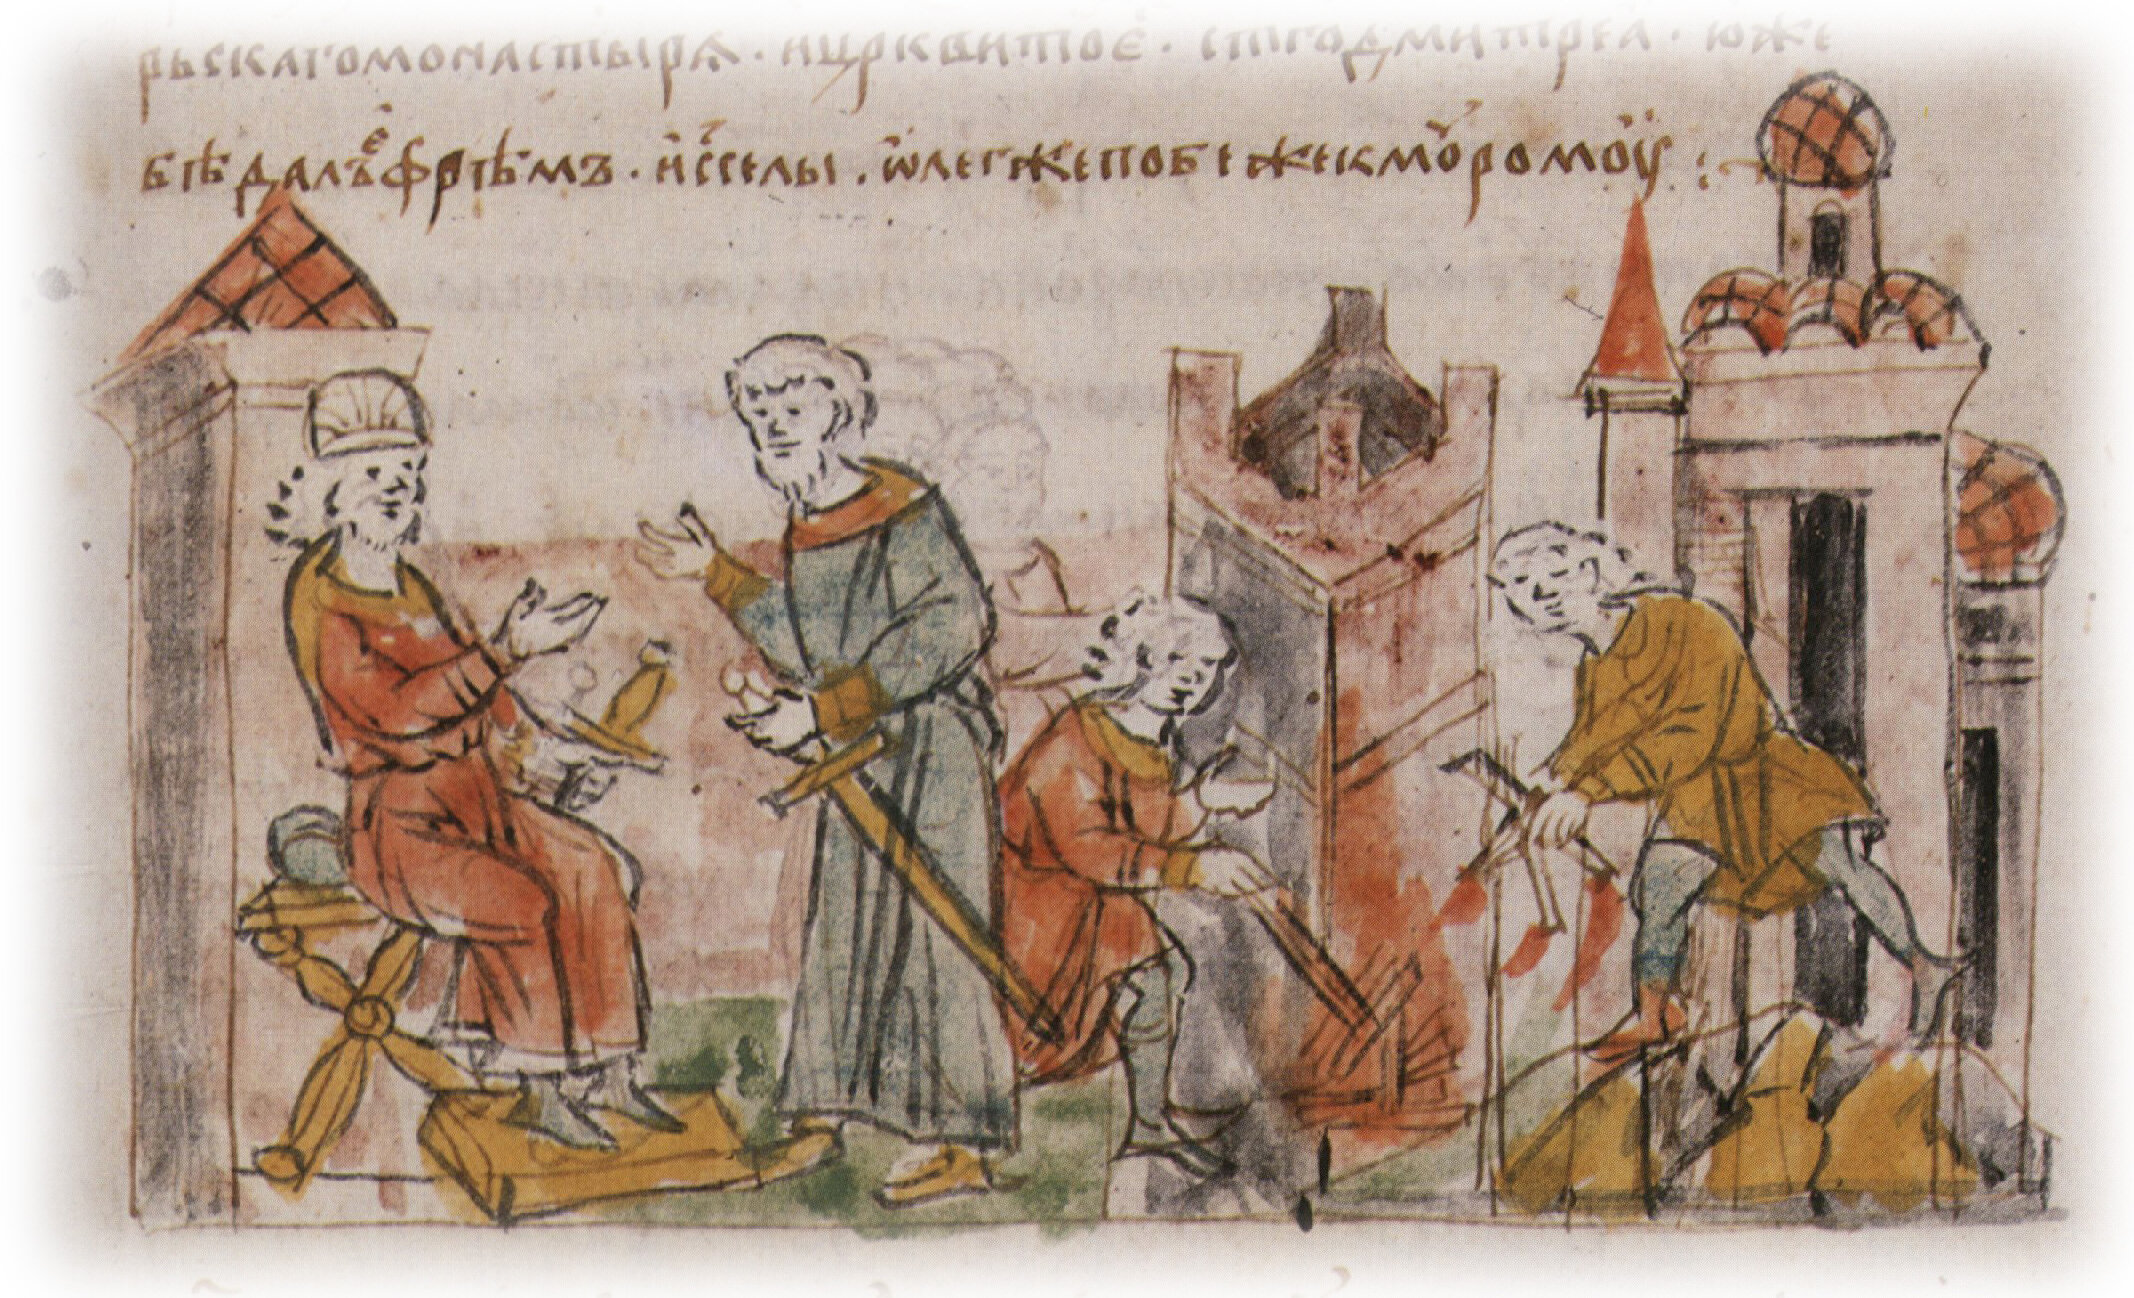 рьскагомонастырѧ · ицркви тое · ст҃годмитреꙗ · юже
бѣдалъефрѣмъ · и҆сселы · ѡ҆легжепобежекмꙋромоу :·